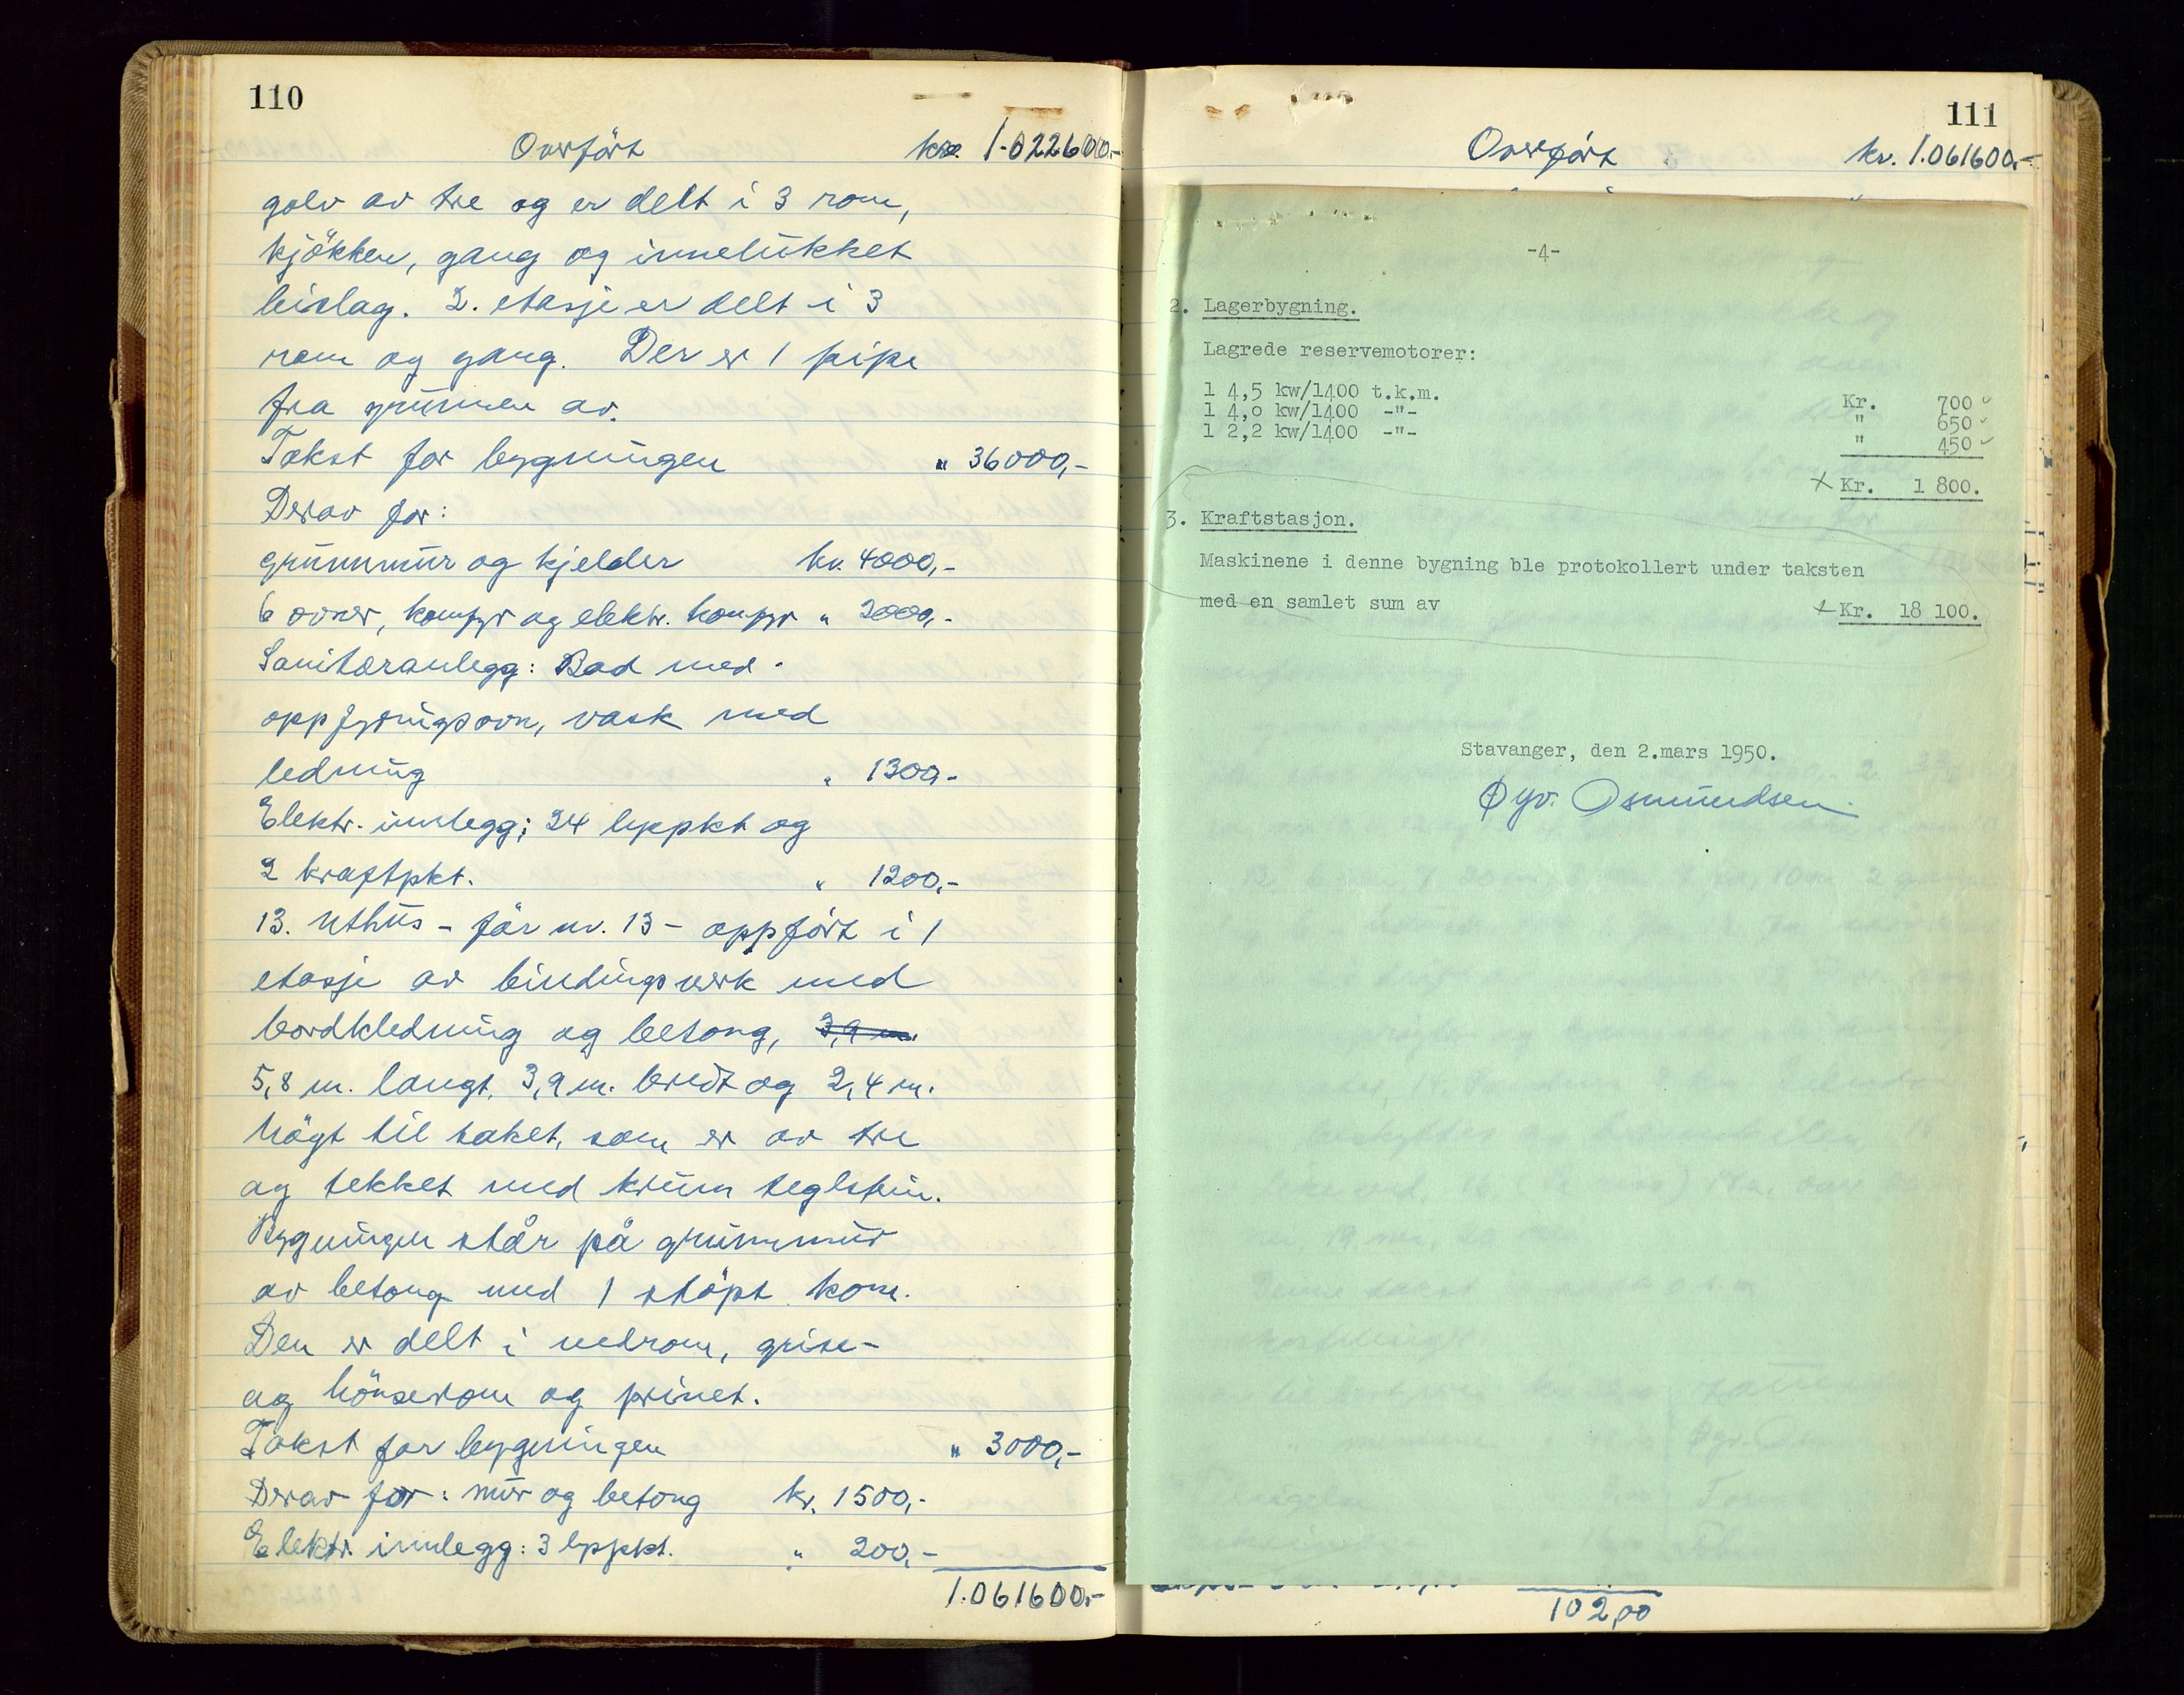 110
Overført kr. 1.022600,-
golv av tre og er delt i 3 rom,
kjökken, gang og innelukket
bislag. 2. etasje er delt i 3
rom og gang. Der er 1 pipe
fra grunnen av.
Takst for bygningen " 36000,-
Derav for:
grunnmur og kjelder kr. 4000,-
6 ovner, komfyr og elektr. komfyr " 2000,-
Sanitæranlegg: Bad med
oppfyringsovn, vask med
ledning " 1300,-
Elektr. innlegg; 24 lyspkt og
2 kraftpkt. " 1200,-
13. Uthus - för nr. 13 - oppført i 1
etasje av bindingsverk med
bordkledning og betong, 3,9 m.
5,8 m. langt, 3,9 m. bredt og 2,4 m.
högt til taket, som er av tre
og tekket med krum teglstein.
Bygningen står på grunnmur
av betong med 1 støpt kom.
Den er delt i vedrom, grise-
og hönserom og privet.
Takst for bygningen " 3000,-
Derav for: mur og betong kr. 1500,-
Elektr. innlegg: 3 lyspkt. " 200,-
1.061600,-
111
Overført kr. 1.061600,-
-4-
2. Lagerbygning.
Lagrede reservemotorer:
1 4,5 kw/1400 t.k.m. Kr. 700
1 4,0 kw/1400 -"- " 650
1 2,2 kw/1400 -"- " 450
Kr. 1 800.
3. Kraftstasjon.
Maskinene i denne bygning ble protokollert under taksten
med en samlet sum av Kr. 18 100.
Stavanger, den 2.mars 1950.
Øyv. Osmundsen
102,00